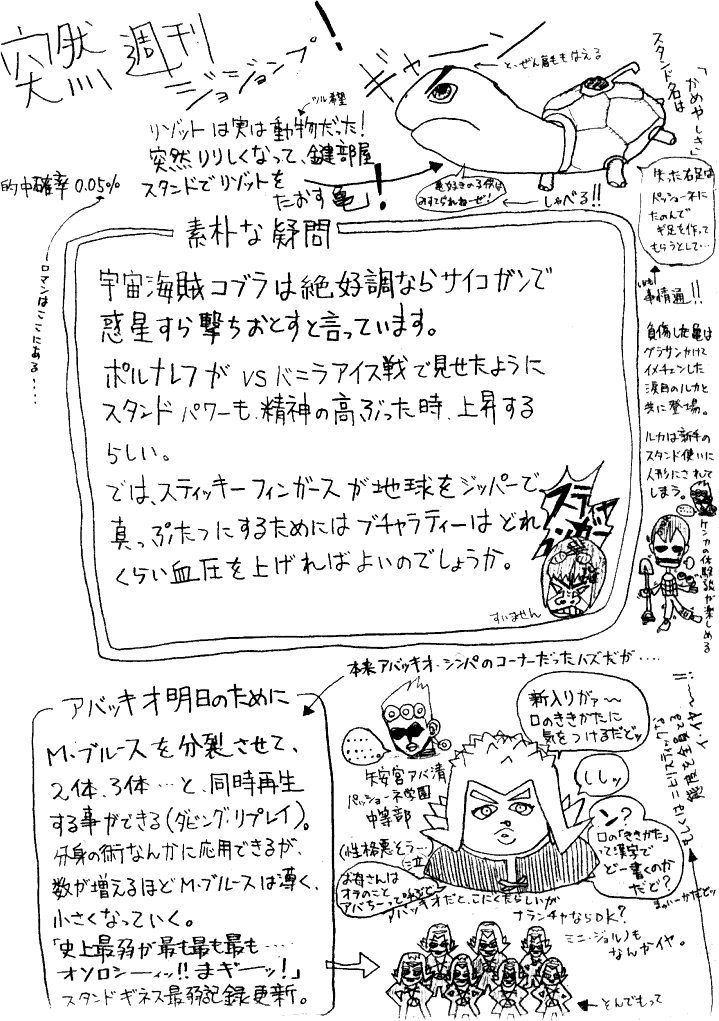 突然週刊
ジョジョンプ!
ギャーン
と、ぜん眉ももはえる
スタンド名は
「かめやしき」
ツル希望
リゾットは実は動物だった!
突然りりしくなって、鍵部屋
スタンドでリゾットを
たおす亀」!
的中確率 0.05%
ロマンはここにある・・・・
亀好きのる俺は
みすてられねーぜ!
しゃべる!!
失った右足は
パッショーネに
たのんで
ギ足を作って
もらうとして…
事情通!!
負傷した亀は
グラサンかけて
イメチェンした
涙目のルカと
共に登場。
ルカは新手の
スタンド使いに
人形にされて
しまう。
ケンカの体験談が楽しめる
素朴な疑問
宇宙海賊コブラは絶好調ならサイコガンで
惑星すら撃ちおとすと言っています。
ポルナレフが VSバニラアイス戦で見せたように
スタンドパワーも、精神の高ぶった時、上昇する
らしい。
では、スティッキーフィンガースが地球をジッパーで
真っぷたつにするためにはブチャラティーはどれ
くらい血圧を上げればよいのでしょうか。
すいません
本来アバッキオ・シンパのコーナーだったハズだが・・・・
アバッキオ明日のために
M・ブルースを分裂させて、
2体、3体…と、同時再生
する事ができる(ダビング・リプレイ)。
分身の術なんかに応用できるが、
数が増えるほどM・ブルースは薄く、
小さくなっていく。
「史上最弱が最も最も最も・・・・
オソロシーィッ!!まギーーッ!」
スタンドギネス最弱記録更新。
矢安宮アバ清
パッショーネ学園
中等部
(性格悪そう…
お母さんは
オラのこと
アバちーって呼ぶど
新入りがァ〜
口のききかたに
気をつけるだどッ
ししッ
ン?
口の「ききかた」
って漢字で
どー書くのか
だど?
まぁいーかだどッ
アバッキオだと、こにくたらしいが
ナランチャならOK?
ミニ・ジョルノも
なんかイヤ。
とんでもって